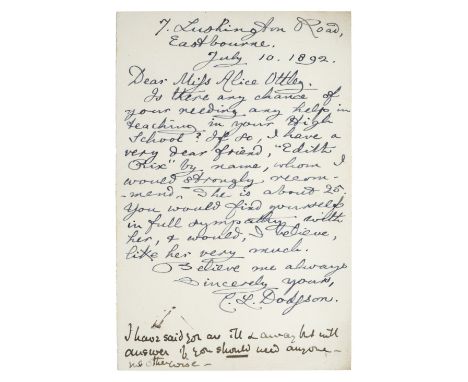 7, Lushington Road,
Eastbourne.
July 10. 1892.
Dear Miss Alice Ottley,
Is there any chance of
your needing any help in
teaching in your High
School? If so, I have a
very dear friend, "Edith
Rix" by name, whom I
would strongly recom-
-mend. She is about 25.
You would find yourself
in full sympathy with
her, & would, I believe,
like her very much.
Believe me always
Sincerely yours,
C. L. Dodgson.
I have said you are ill & away but will
answer if you should need anyone—
not otherwise—